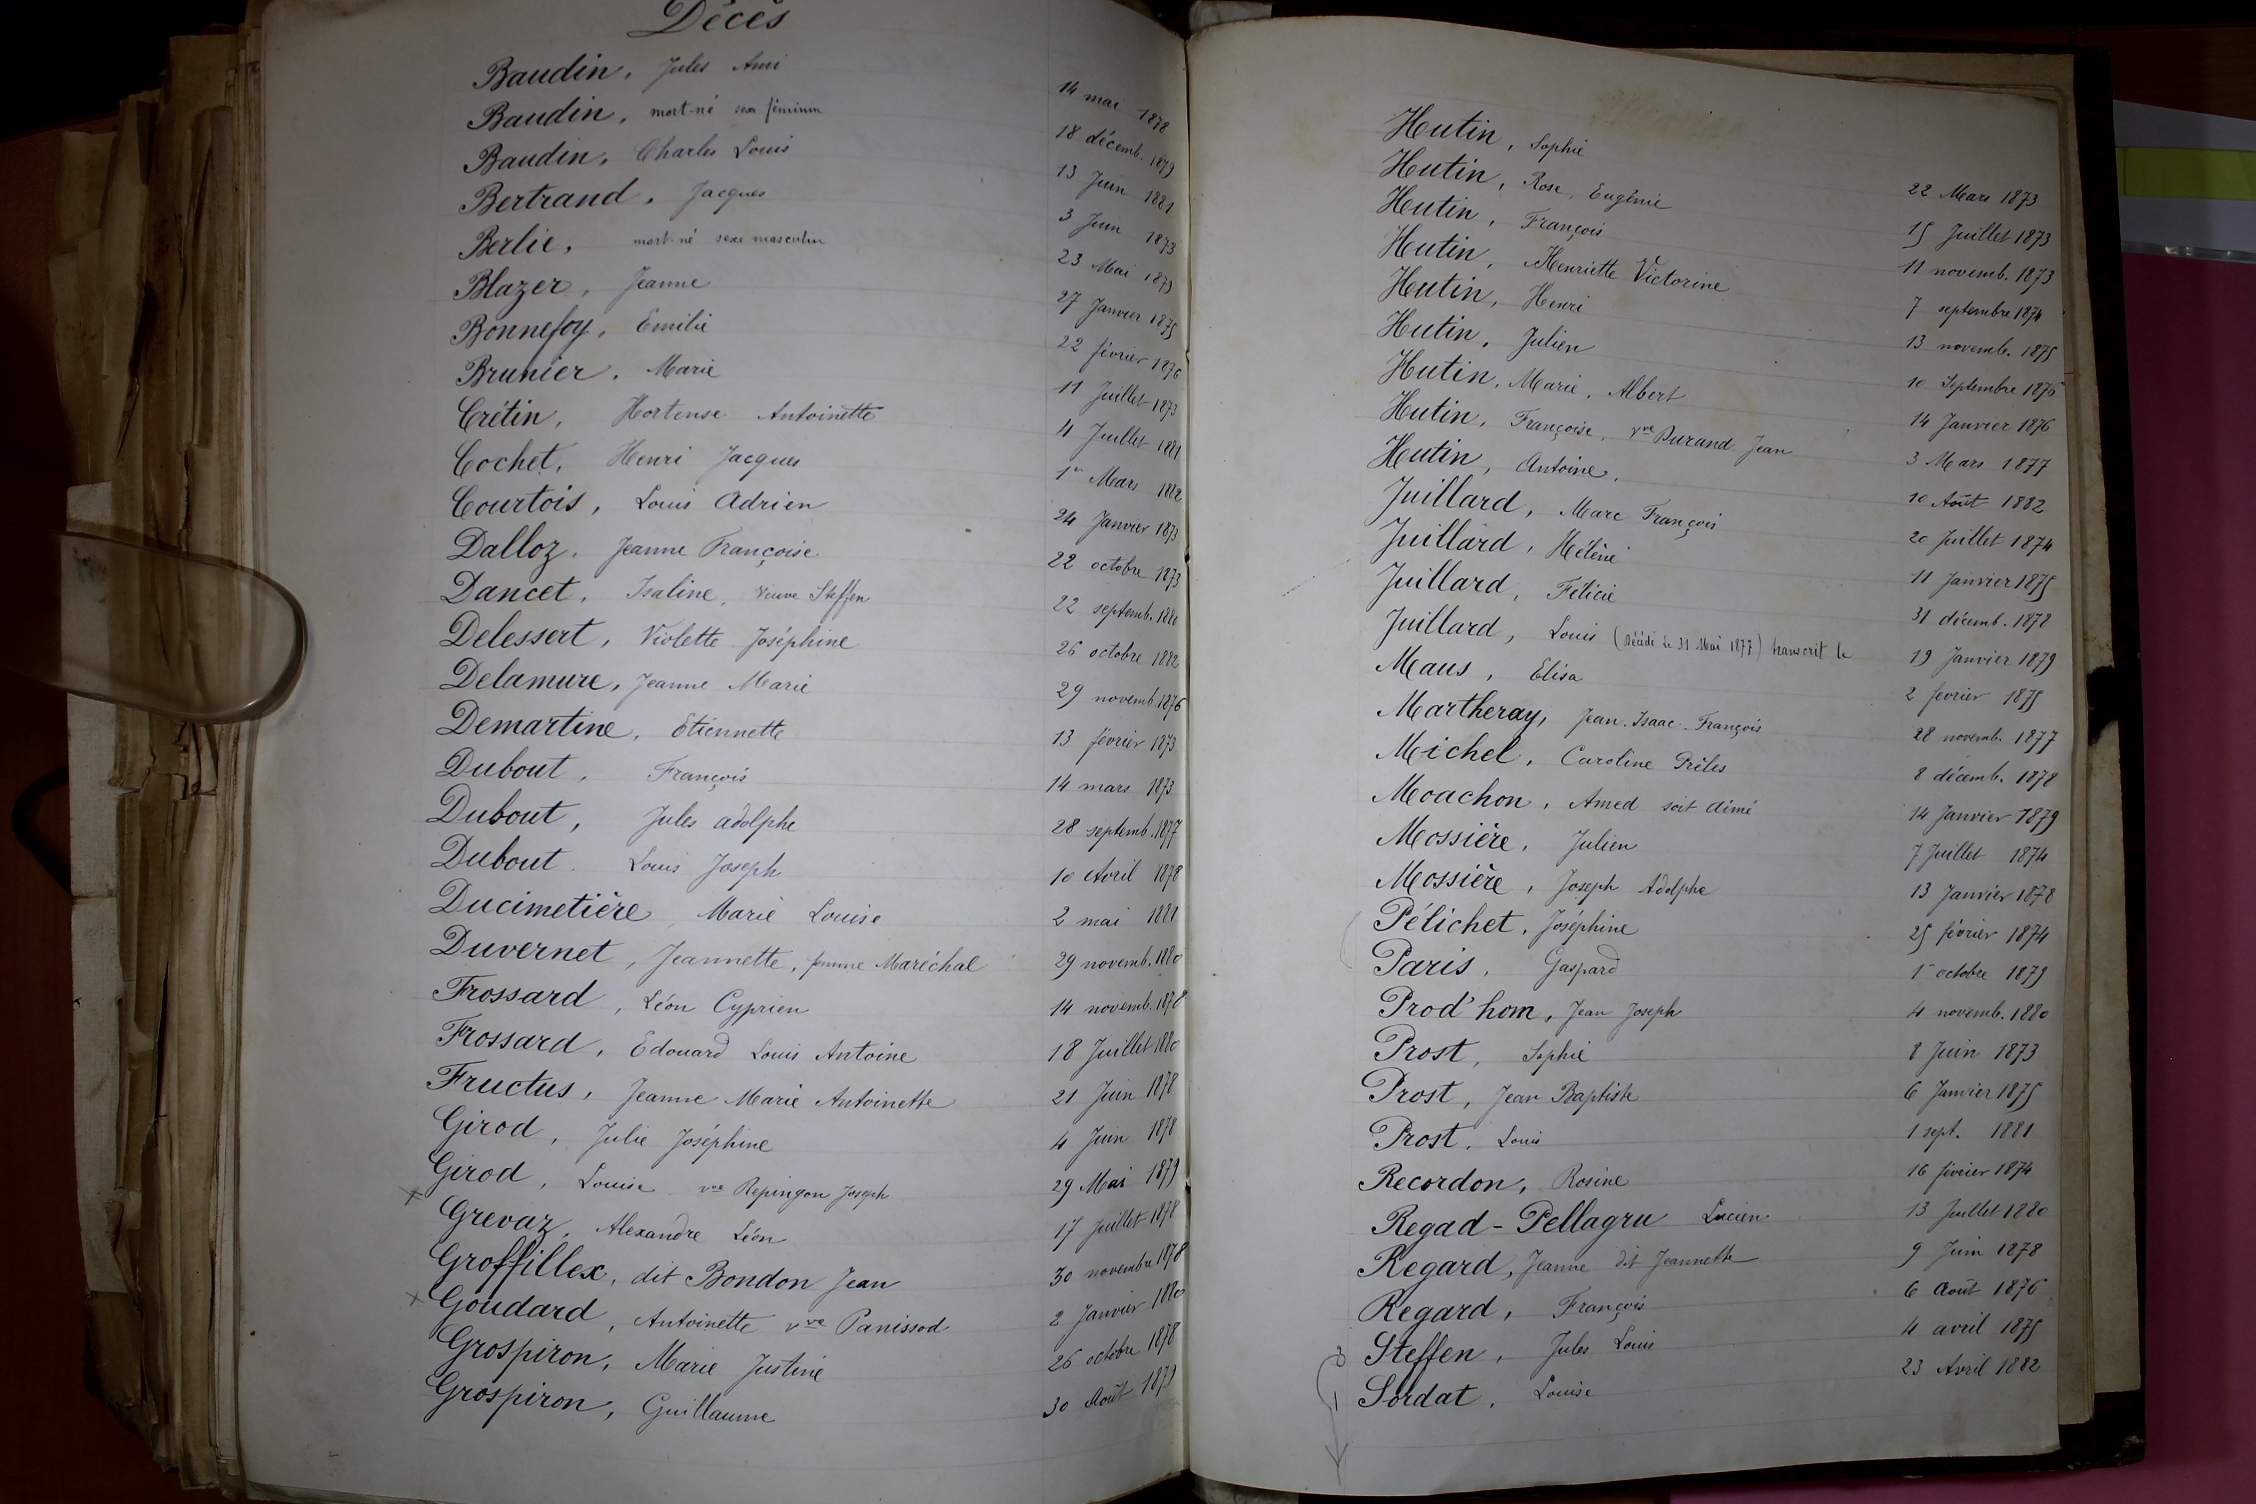 Décès
Baudin, Jules Ami 14 mai 1878
Baudin, mort-né sexe féminin 18 décemb. 1879
Baudin, Charles Louis 13 Juin 1881
Bertrand, Jacques 3 Juin 1873
Berlie, mort-né sexe masculin 23 Mai 1879
Blazer, Jeanne 27 Janvier 1875
Bonnefoy, Emilie 22 février 1876
Brunier, Marie 11 Juillet 1873
Crétin, Hortense Antoinette 4 Juillet 1881
Cochet, Henri Jacques 1er Mars 1882
Courtois, Louis Adrien 24 Janvier 1873
Dalloz, Jeanne Françoise 22 octobre 1873
Dancet, Isaline, veuve Steffen 22 septemb. 1880
Delessert, Violette Joséphine 26 octobre 1882
Delamure, Jeanne Marie 29 novemb. 1876
Demartine, Etiennette 13 février 1873
Dubout, François 14 mars 1873
Dubout, Jules adolphe 28 septemb. 1877
Dubout. Louis Joseph 10 Avril 1878
Ducimetière, Marie Louise 2 mai 1881
Duvernet, Jeannette, femme Maréchal 29 novemb. 1880
Frossard, Léon Cyprien 14 novemb. 1878
Frossard, Edouard Louis Antoine 18 Juillet 1880
Fructus, Jeanne Marie Antoinette 21 Juin 1878
Girod, Julie Joséphine 4 Juin 1878
Girod, Louise vve Repingon Joseph 29 Mai 1879
Grevaz, Alexandre Léon 17 Juillet 1878
Groffillex, dit Bondon Jean 30 novembre 1878
Goudard, Antoinette vve Panissod 2 Janvier 1880
Grospiron, Marie Justine 26 octobre 1878
Grospiron, Guillaume 30 Août 1879
Hutin, Sophie 22 Mars 1873
Hutin, Rose, Eugénie 15 Juillet 1873
Hutin, François 11 novemb. 1873
Hutin, Henriette Victorine 7 septembre 1874
Hutin, Henri 13 novemb. 1875
Hutin, Julien 10 Septembre 1875
Hutin, Marie, Albert 14 Janvier 1876
Hutin, Françoise, vve Durand Jean 3 Mars 1877
Hutin, Antoine. 10 Août 1882
Juillard, Marc François 20 Juillet 1874
Juillard, Hélène 11 Janvier 1875
Juillard, Félicie 31 décemb. 1878
Juillard, Louis (Décédé le 31 Mai 1877) transcrit le 19 Janvier 1879
Maus, Elisa 2 fevrier 1875
Martheray, Jean-Isaac-François 28 novemb. 1877
Michel, Caroline Prêles 8 décemb. 1878
Moachon, Amed soit Aimé 14 Janvier 1879
Mossière, Julien 7 Juillet 1874
Mossière, Joseph Adolphe 13 Janvier 1878
Pélichet, Joséphine 25 février 1874
Paris, Gaspard 1er octobre 1879
Prod'hom, Jean Joseph 4 novemb. 1880
Prost, Sophie 8 Juin 1873
Prost, Jean Baptiste 6 Janvier 1875
Prost, Louis 1 sept. 1881
Recordon, Rosine 16 février 1874
Regad-Pellagru Lucien 13 Juillet 1880
Regard, Jeanne dit Jeannette 9 Juin 1878
Regard, François 6 Août 1876
Steffen, Jules Louis 4 avril 1875
Sordat, Louise 23 Avril 1882